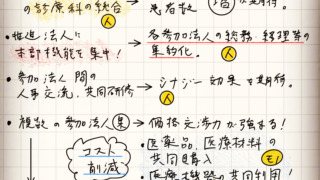 の診療科の統合 → 患者数 局 が期待。
人
・推進法人に → 各参加法人の総務・経理等の
本部機能を集中! 集約化。
人
・参加法人間の → シナジー効果を期待。
人事交流、共同研修 人
・複数の参加法人 → 価格交渉力が強まる!
コスト ・医薬品、医療材料の
削減 共同購入 モノ
・医療機器の共同利用!